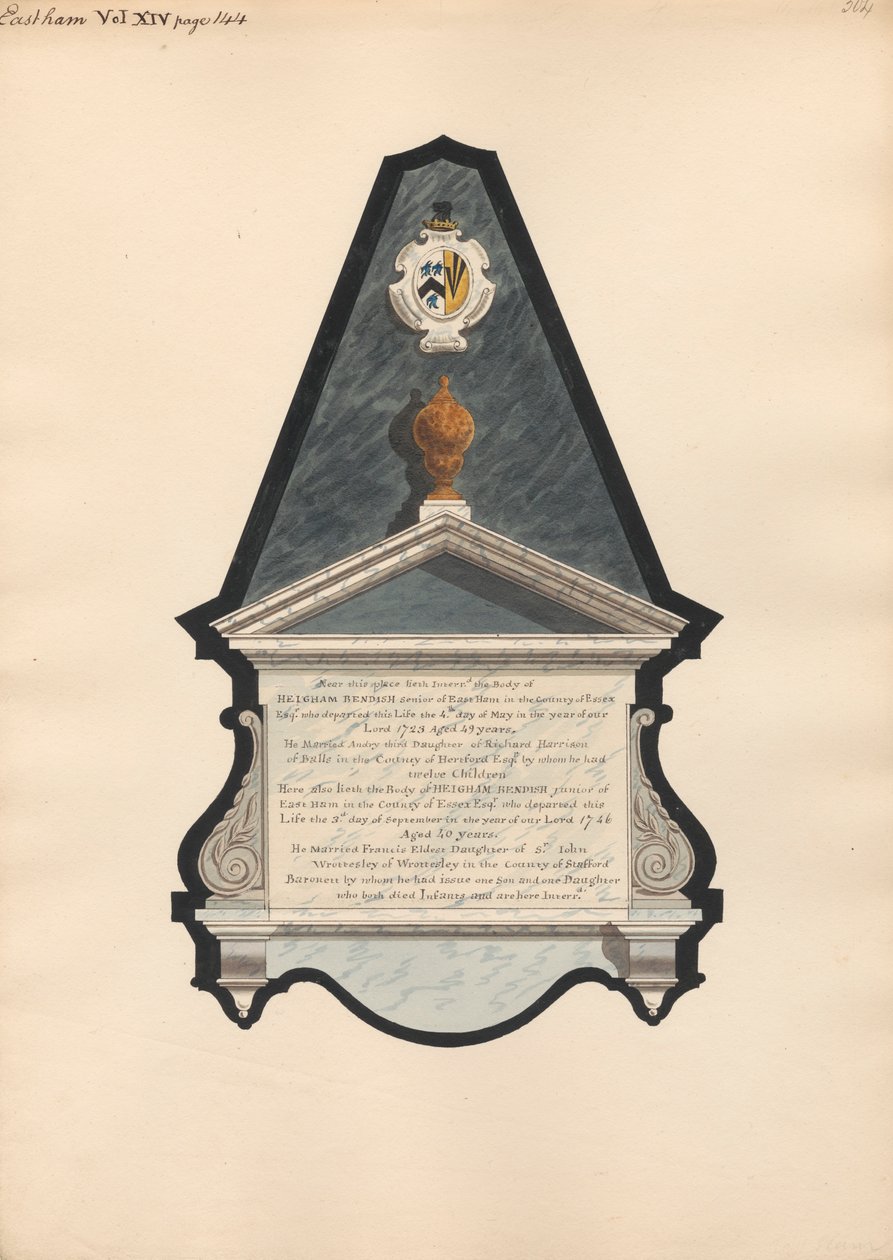 Eastham Vol XIV page 144
304
Near this place lieth Interr.d the Body of
HEIGHAM BENDISH senior of East Ham in the County of Essex
Esq.r who departed this Life the 4.th day of May in the year of our
Lord 1723 Aged 49 years.
He Married Andry third Daughter of Richard Harrison
of Balls in the County of Hertford Esq.r by whom he had
twelve Children
Here also lieth the Body of HEIGHAM BENDISH junior of
East Ham in the County of Essex Esq.r who departed this
Life the 3.d day of September in the year of our Lord 1746
Aged 40 years.
He Married Francis Eldest Daughter of S.r Iohn
Wrottesley of Wrottesley in the County of Stafford
Baronett by whom he had issue one Son and one Daughter
who both died Infants and are here Interr.d